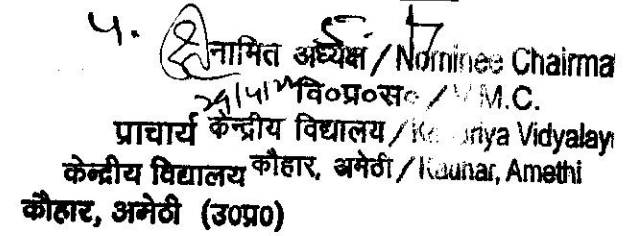 ५.
नामित अध्यक्ष / Nominee Chairma
वि०प्र०स० / V.M.C.
प्राचार्य केन्द्रीय विद्यालय / Kendriya Vidyalay
केन्द्रीय विद्यालय कौहार, अमेठी / Kauhar, Amethi
कौहार, अमेठी (उ०प्र०)